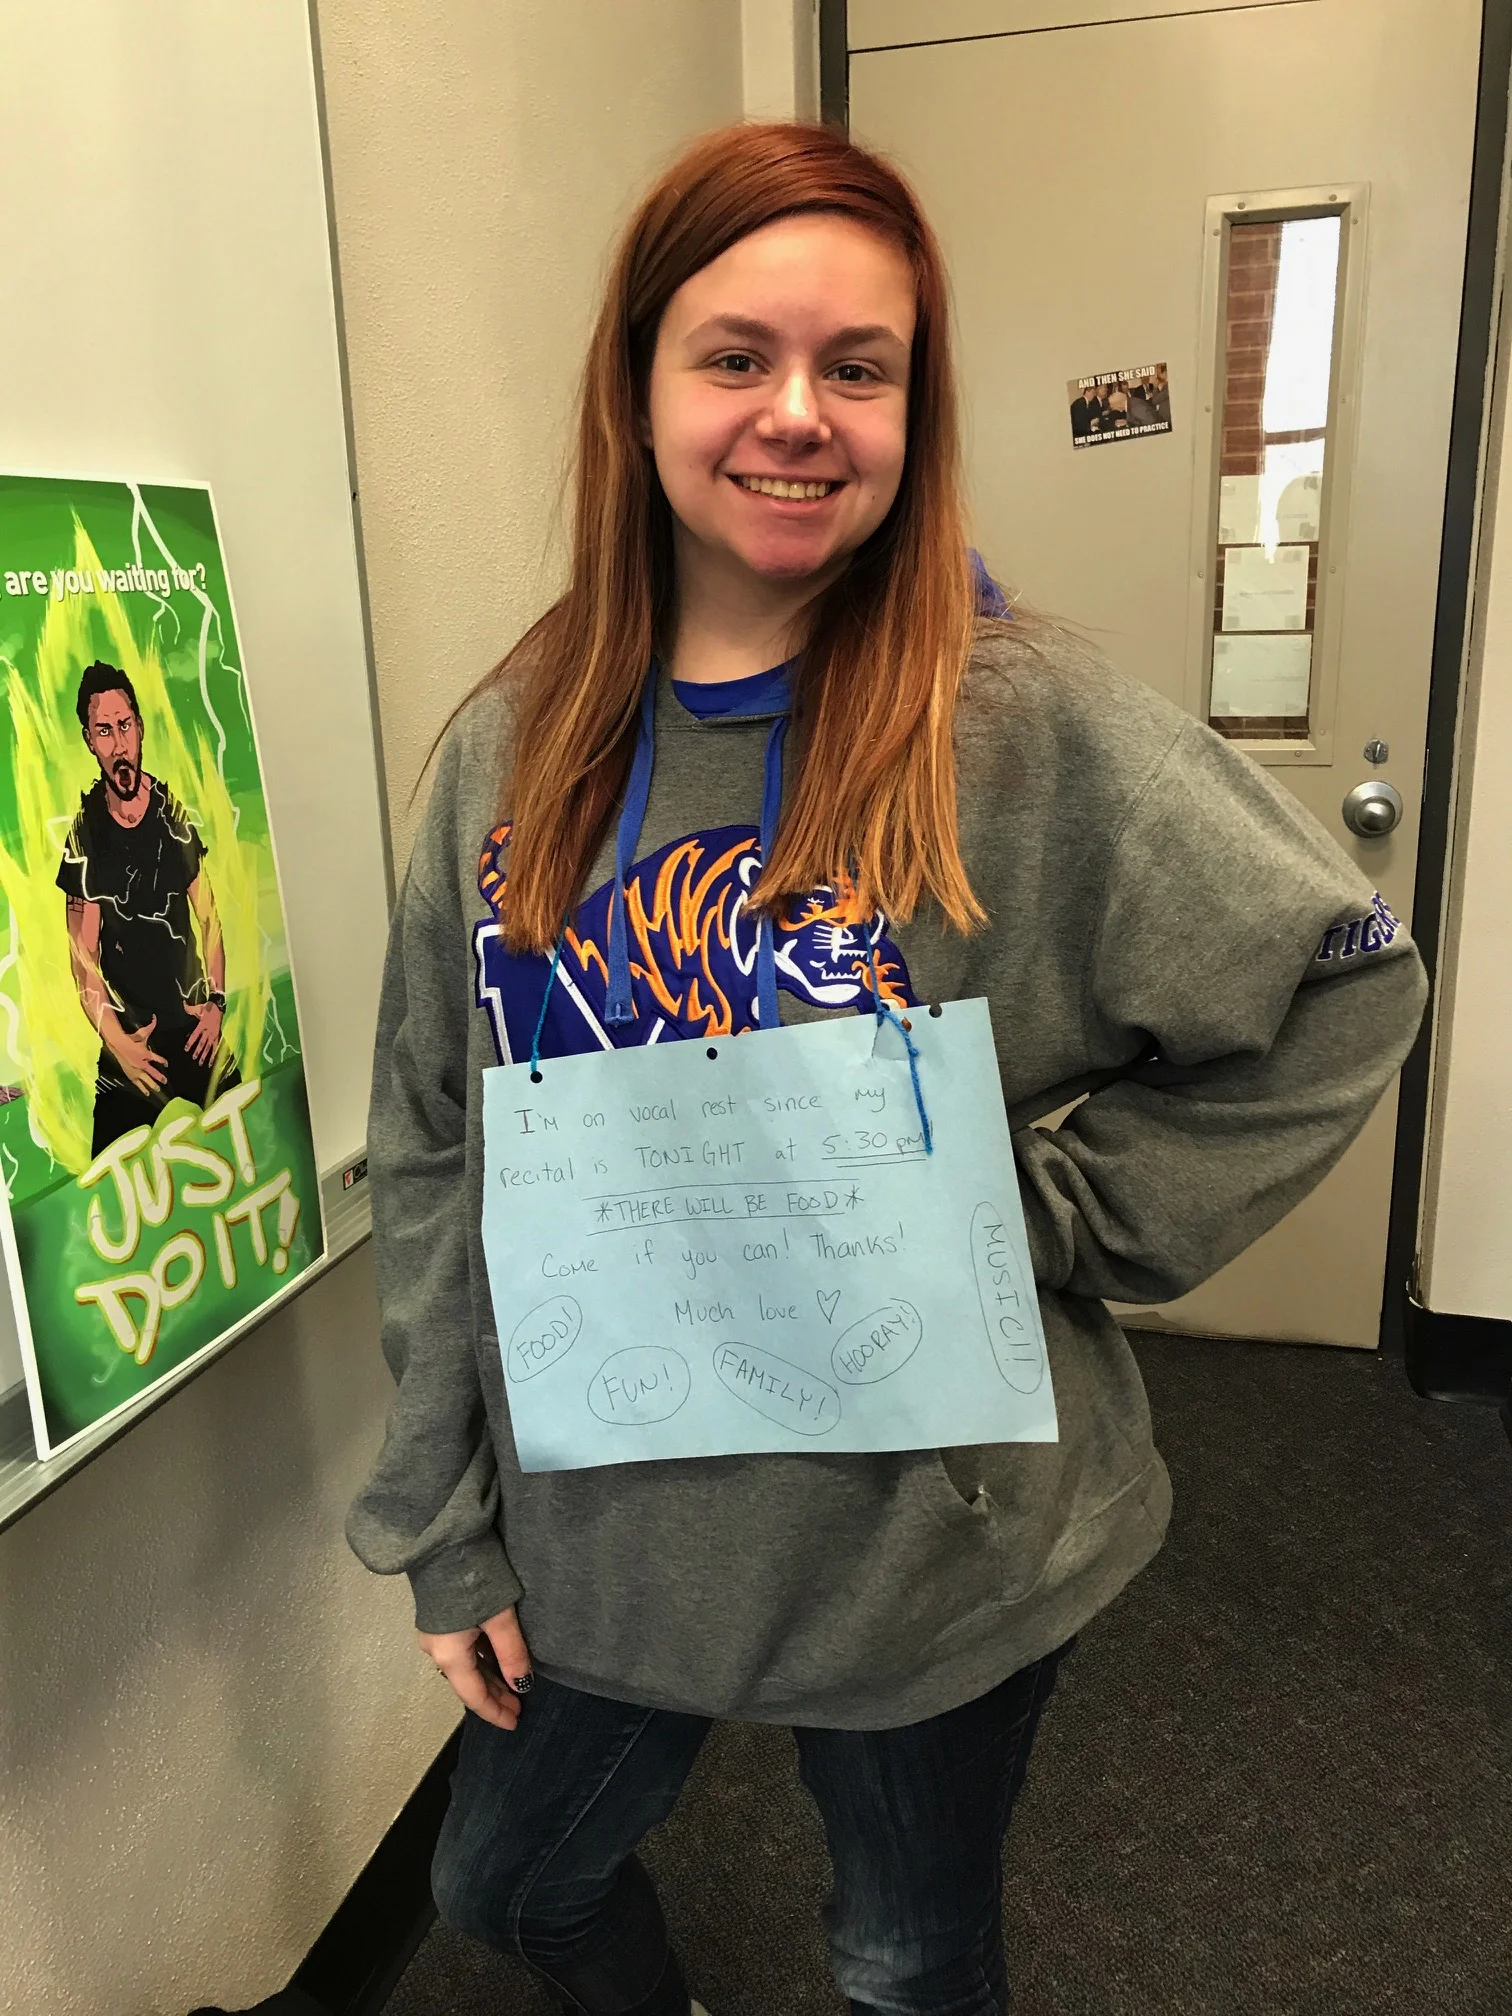 , are you waiting for?
JUST
DO IT!
AND THEN SHE SAID
SHE DOES NOT NEED TO PRACTICE
TIGERS
I'm on vocal rest since my
recital is TONIGHT at 5:30 pm
*THERE WILL BE FOOD*
Come if you can! Thanks!
Much love ♡
FOOD!
FUN!
FAMILY!
HOORAY!
MUSIC!